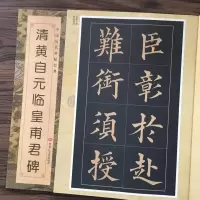 清黄自元临皇甫君碑
臣彰於赴
難銜須授